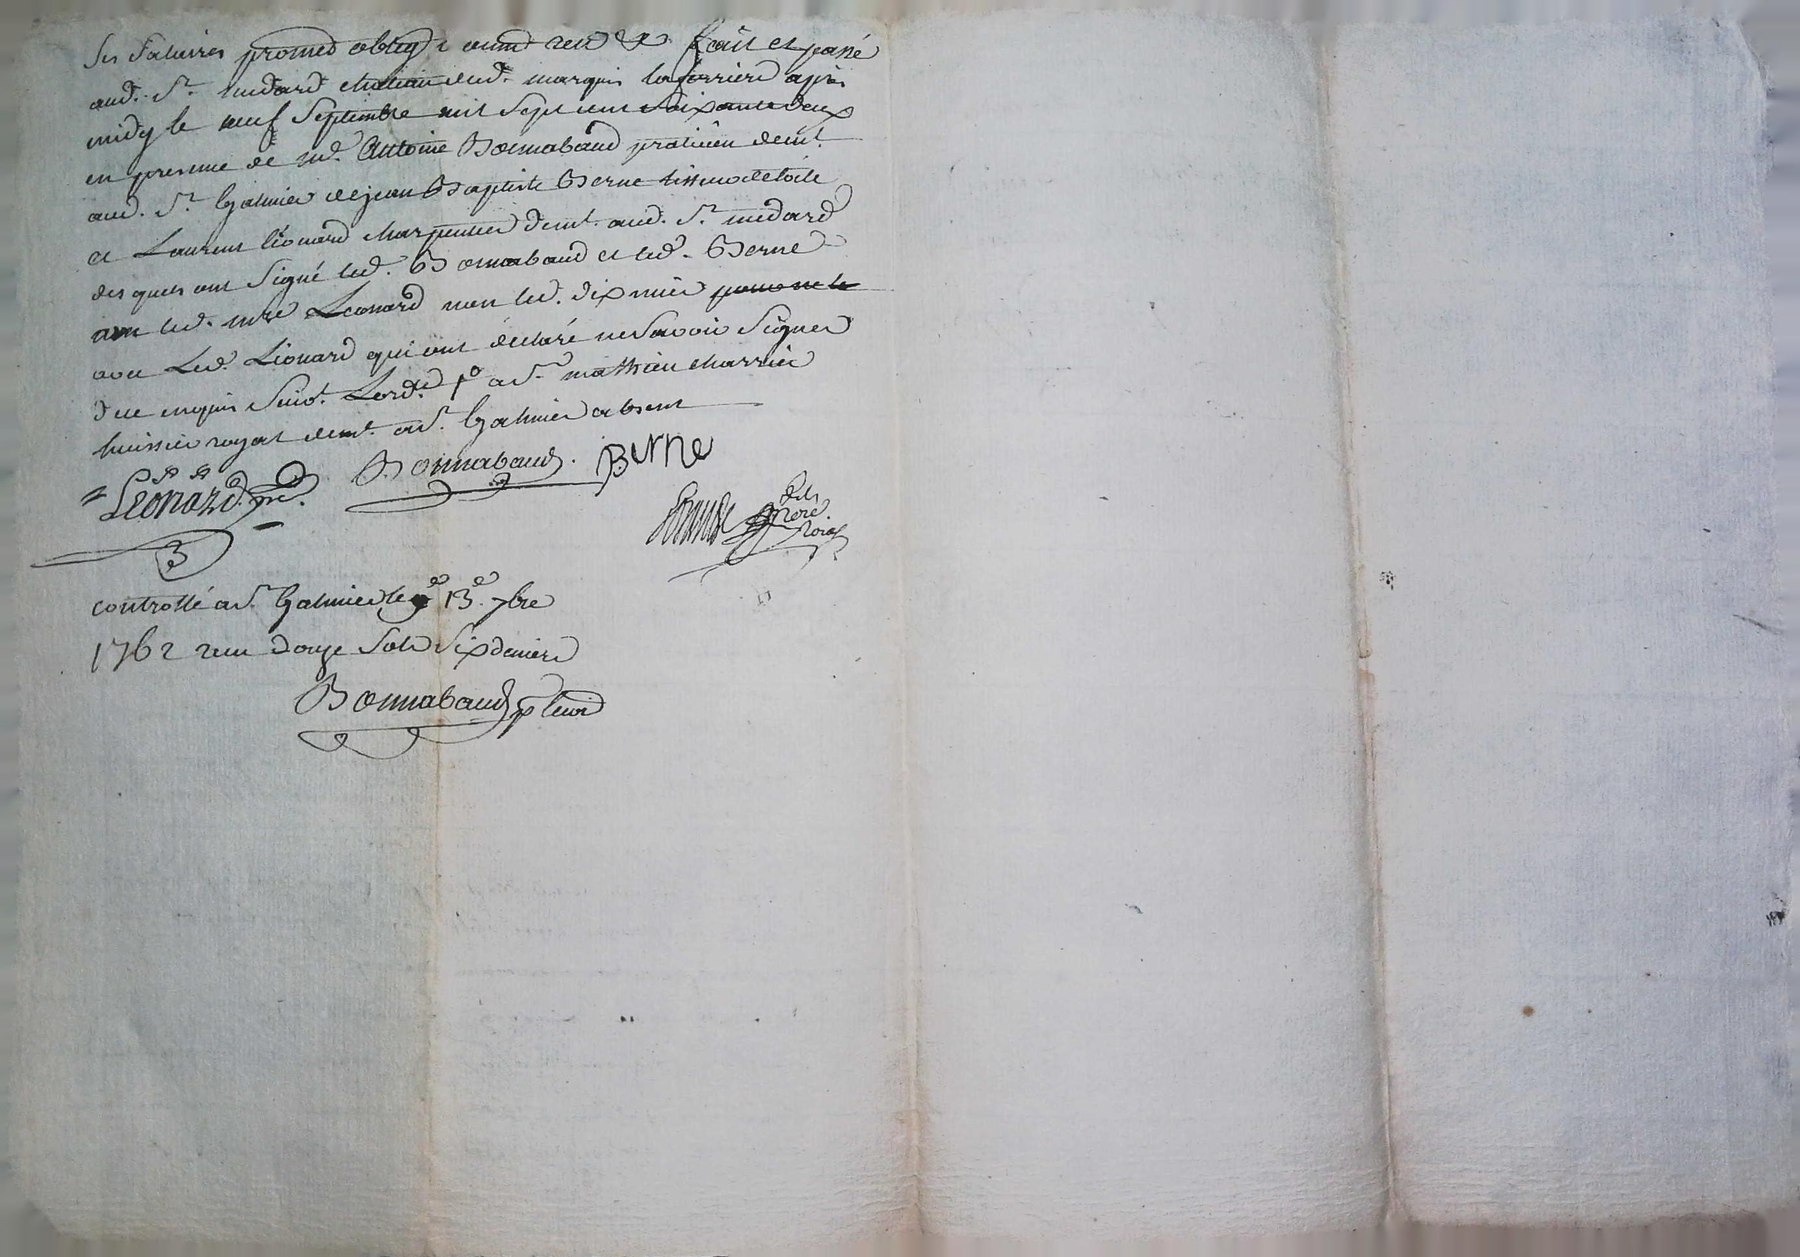 ses salaires promet oblig. & renon. &. fait et passé
aud. St. medard chateau dud. marquis la ferriere apres
midy le neuf septembre mil sept cent soixante deux
en presence de me. Antoine Bonnabaud praticien demt.
aud. St. Galmier de jean Baptiste Berne tisseur de toile
et Laurent Léonard charpentier demt. aud. St. medard
desquels ont signé led. Bonnabaud et led. Berne
avec led. mre Leonard non led. dixmier
avec Led. Léonard qui ont déclaré ne savoir signer
de ce enquis suivt. Lord. a St. mathieu charrier
huissier royal demt. a St. Galmier absent
Leonard pre.
Bonnabaud. Berne
controllé a St. Galmier le 13e. 7bre
1762 recu douze sols six deniers
Bonnabaud